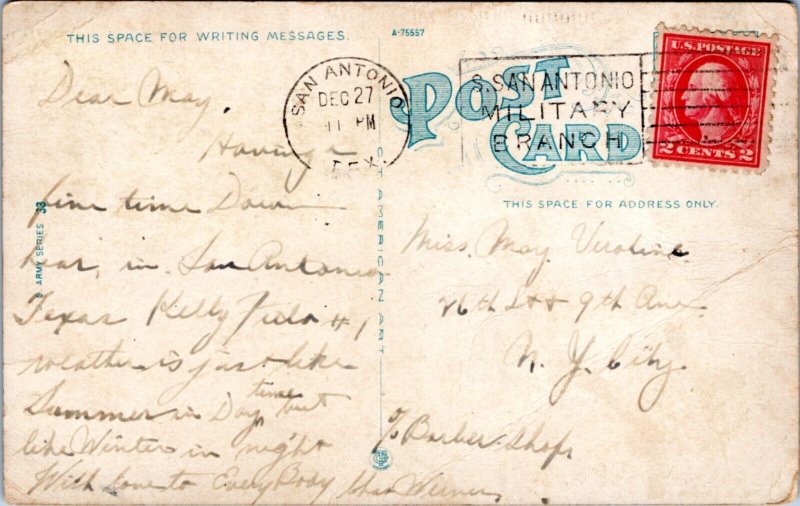 THIS SPACE FOR WRITING MESSAGES.
A-76557
POST CARD
SAN ANTONIO
DEC 27
11 PM
TEX.
S. SAN ANTONIO
MILITARY
BRANCH
U.S. POSTAGE
2 CENTS 2
THIS SPACE FOR ADDRESS ONLY.
ARMY SERIES 33
C.T. AMERICAN ART
Dear May.
Having a
fine time Down
hear, in San Antonio
Texas Kelly Field #1
weather is just like
Summer in Day time but
like Winter in night
With love to EveryBody Chas Werner
Miss. May
26th St & 9th Ave
N. Y. City.
c/o Barber Shop